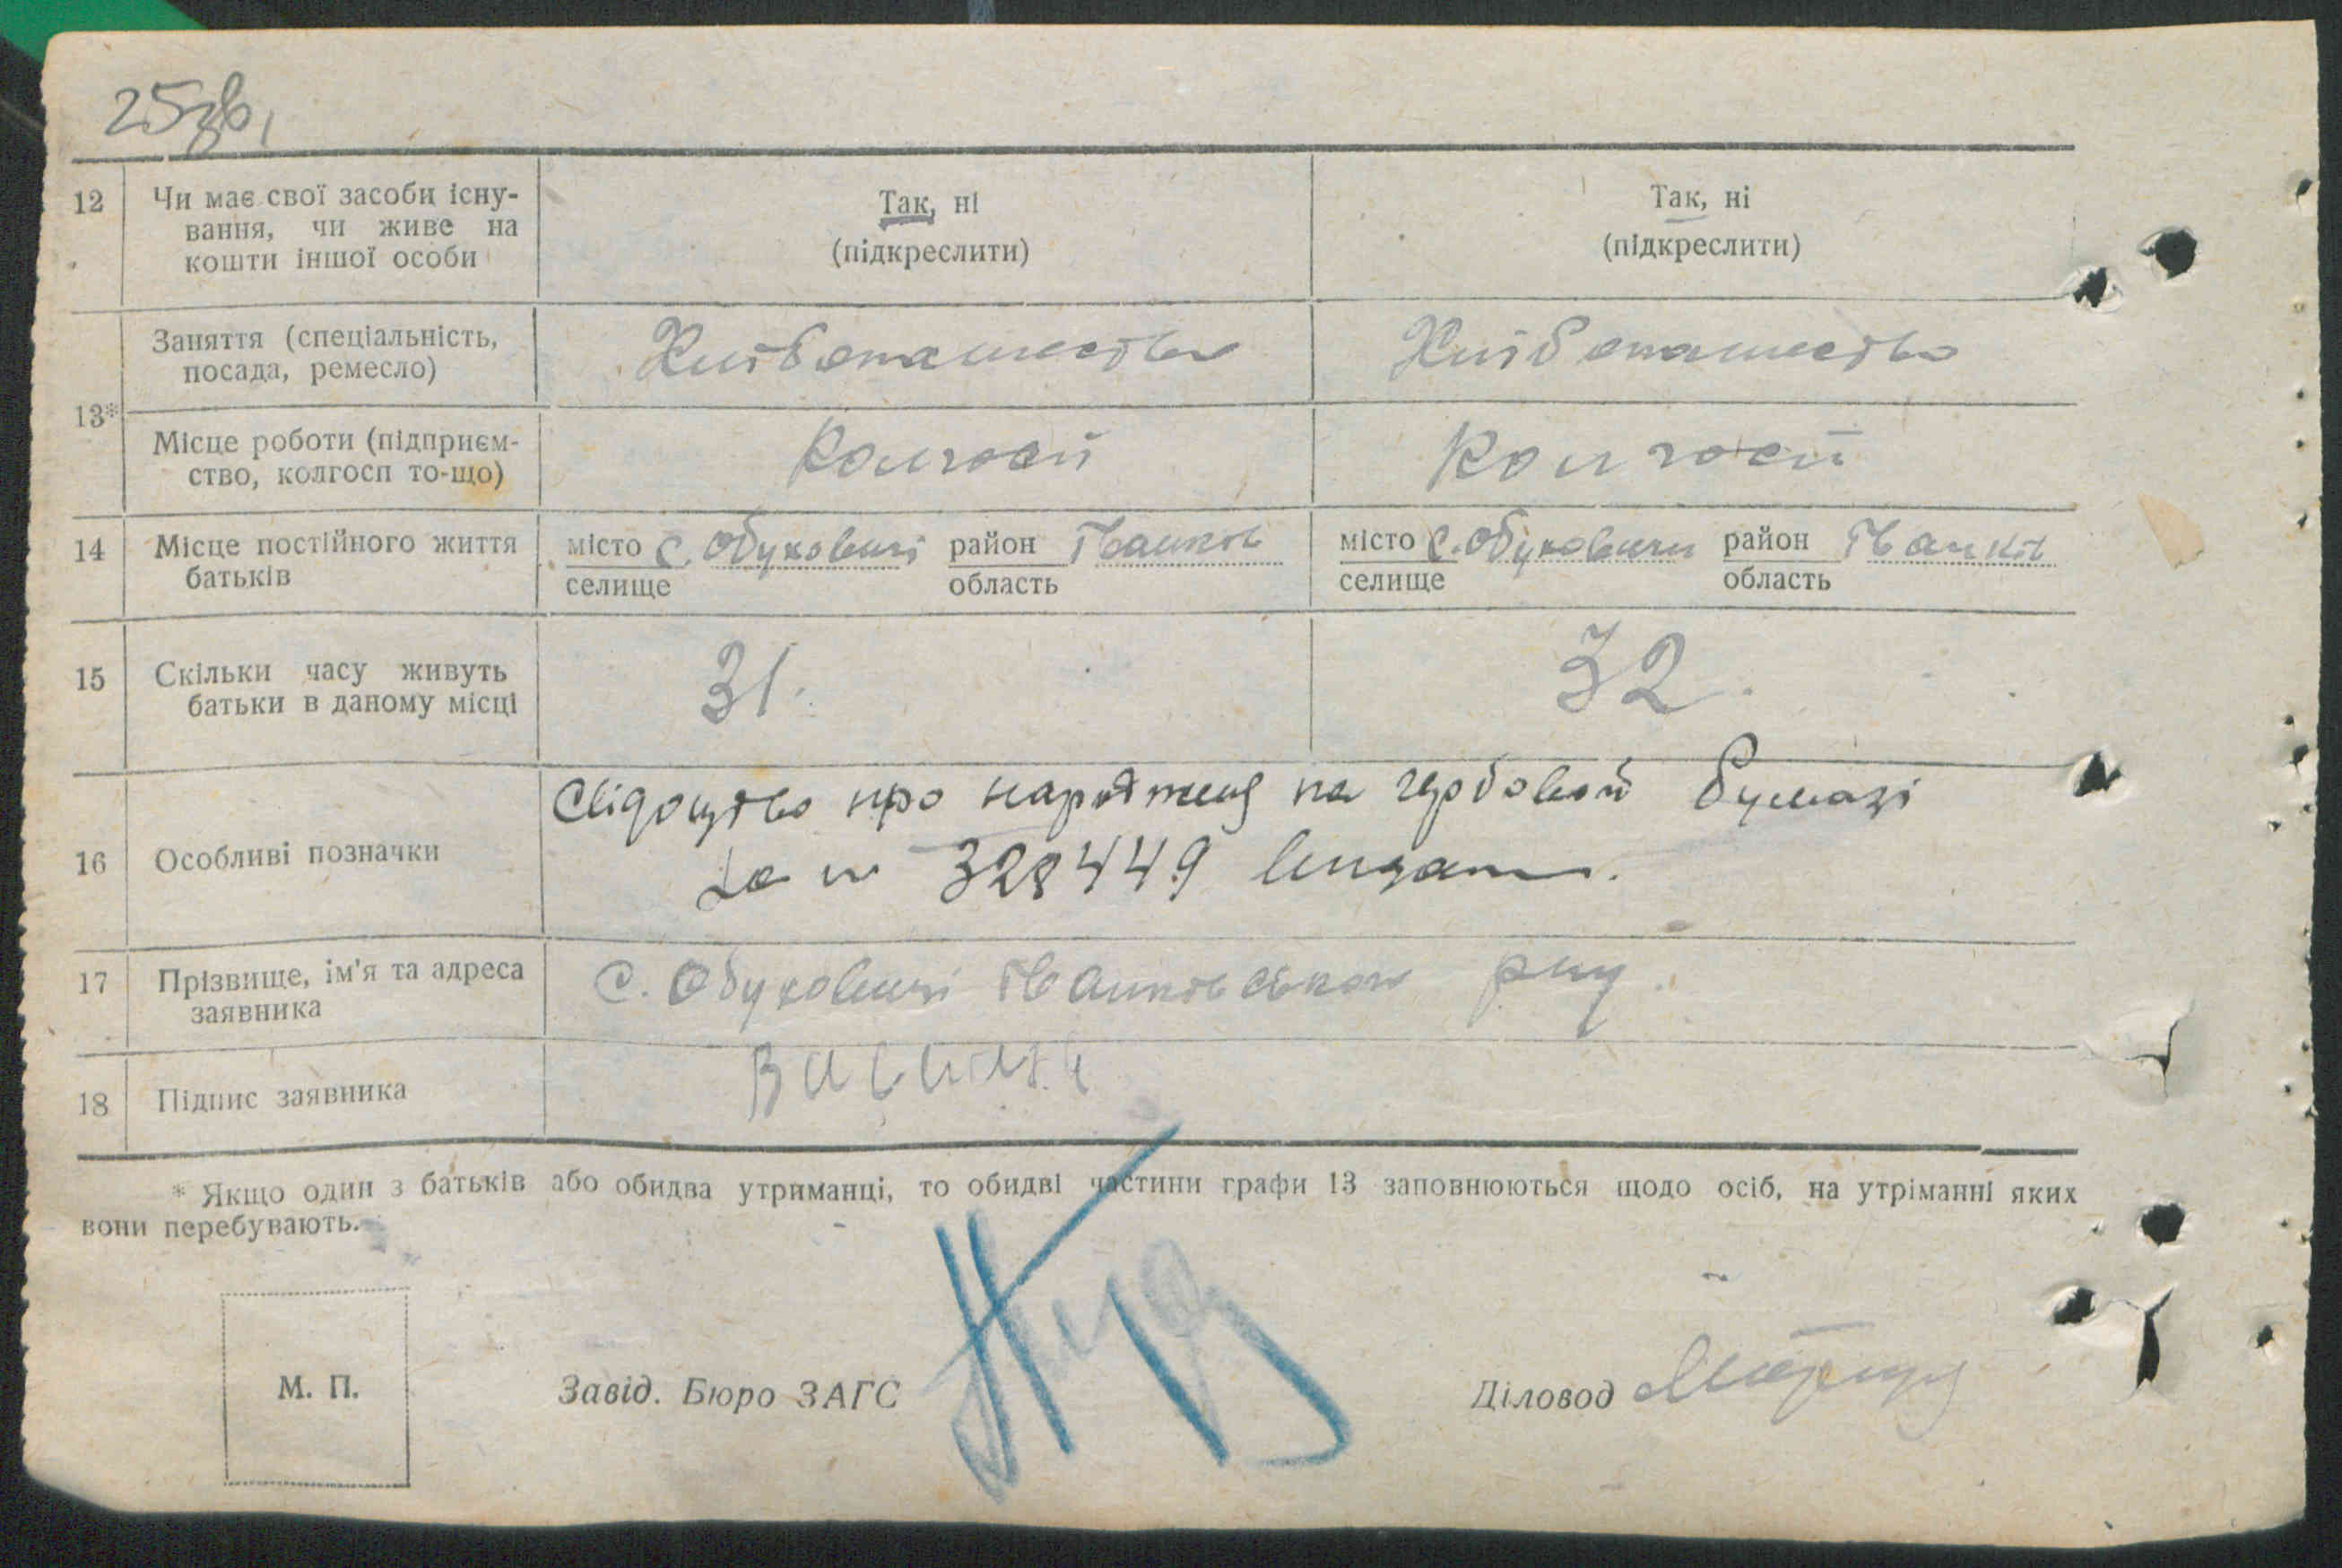 25зв.
12 Чи має свої засоби існу- Так, ні Так, ні
вання, чи живе на (підкреслити) (підкреслити)
кошти іншої особи
Заняття (спеціальність, Хлібопашество Хлібопашество
посада, ремесло)
13*
Місце роботи (підприєм- Колгосп Колгосп
ство, колгосп то-що)
14 Місце постійного життя місто с. Обуховичі район Іванків місто с. Обуховичи район Іванків
батьків селище область селище область
15 Скільки часу живуть 31. 32.
батьки в даному місці
Свідоцтво про народження на гербовой бумазі
16 Особливі позначки За № 328449
17 Прізвище, ім'я та адреса с. Обуховичі Іванківського р-ну.
заявника
18 Підпис заявника
* Якщо один з батьків або обидва утриманці, то обидві частини графи 13 заповнюються щодо осіб, на утріманні яких
вони перебувають.
М. П. Завід. Бюро ЗАГС Діловод